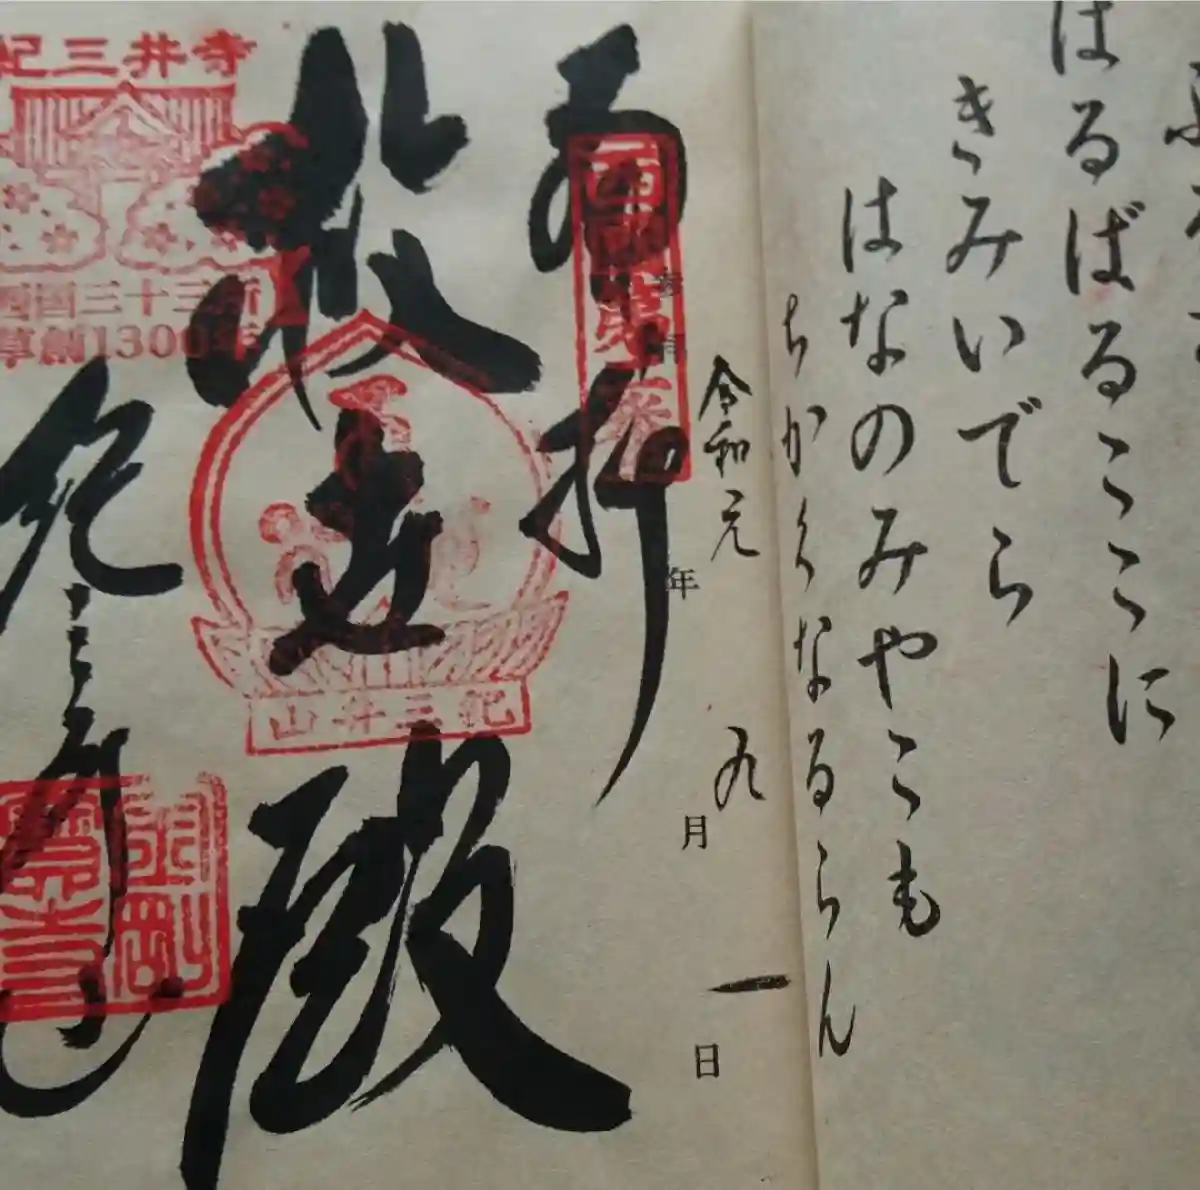 はるばるここに
きみいでら
はなのみやこも
ちかくなるらん
令和元年九月一日
奉拝
西国第二番
救世殿
紀三井山
紀三井寺
西国三十三所
草創1300年
紀三井寺
金剛
寶寺